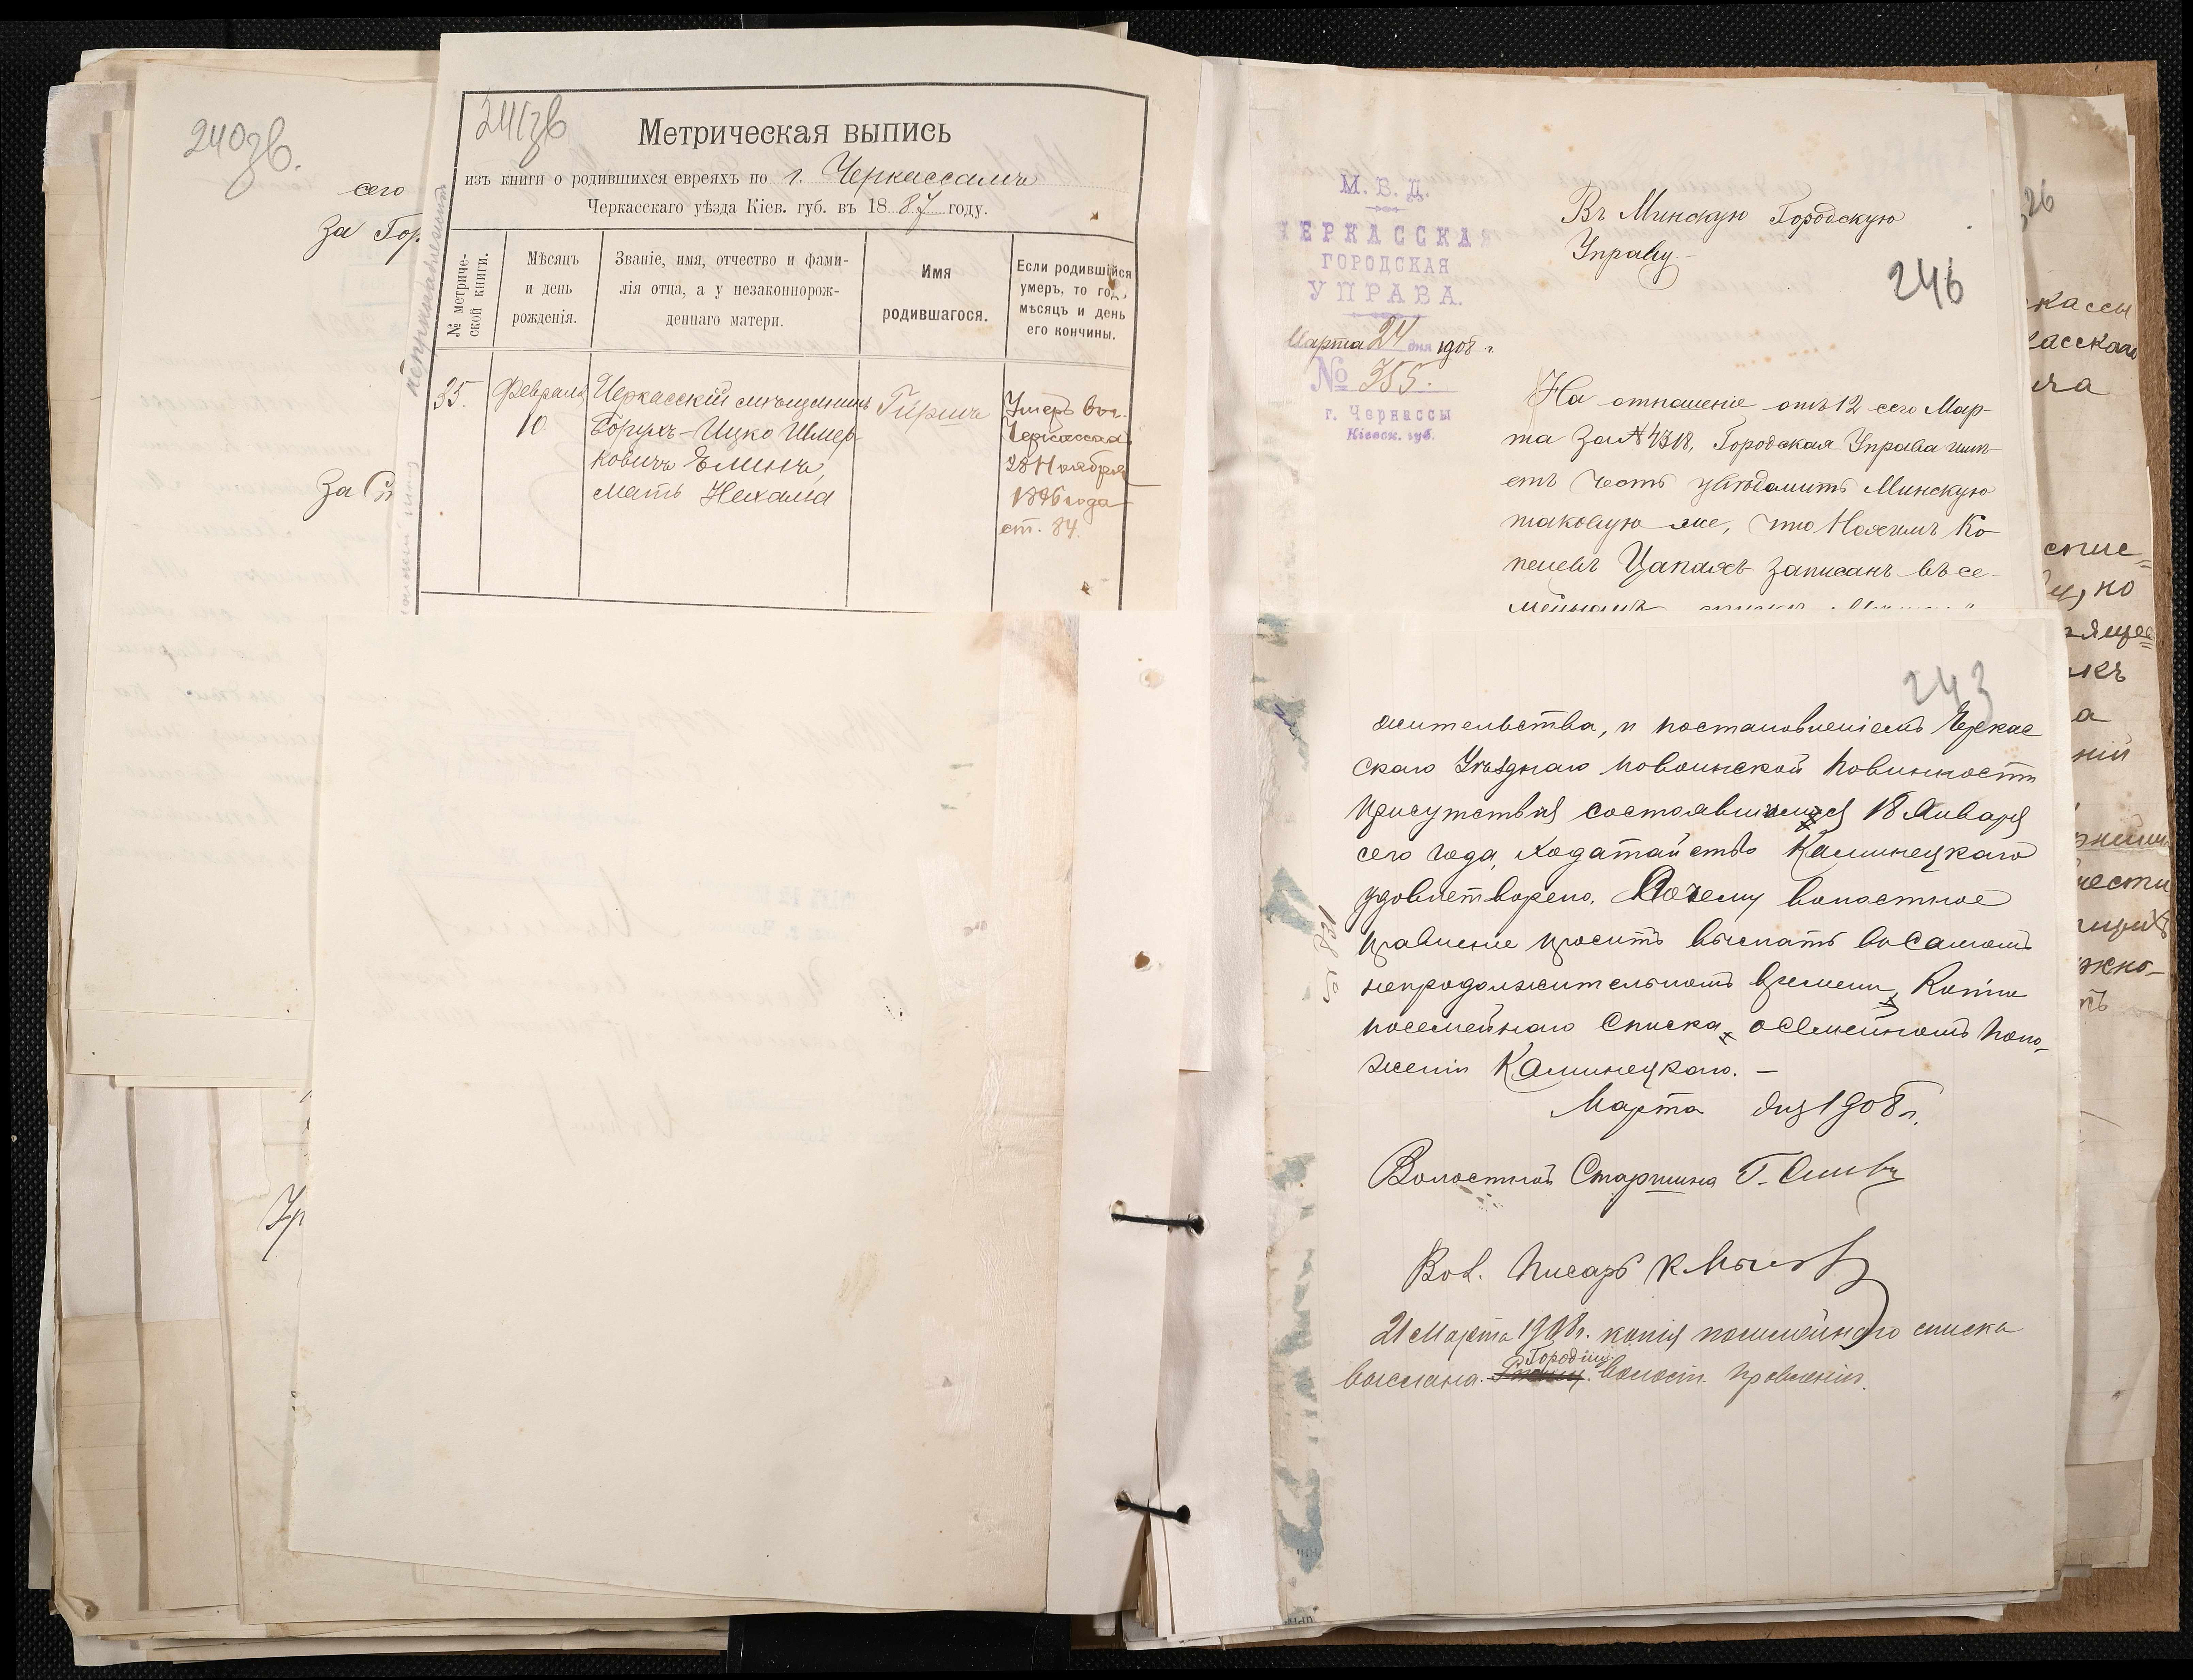 240зв.
сего
За Гор
За
241зв
Метрическая выпись
изъ книги о родившихся евреяхъ по г. Черкассамъ
Черкасскаго уѣзда Кіев. губ. въ 1887 году.
№ метриче-
ской книги.
Мѣсяцъ
и день
рожденія.
Званіе, имя, отчество и фами-
лія отца, а у незаконнорож-
деннаго матери.
Имя
родившагося.
Если родившійся
умеръ, то годъ,
мѣсяцъ и день
его кончины.
35.
Февраля
10
Черкасскій мѣщанинъ
Борухъ-Ицко Шмер-
ковичъ Элинъ,
мать Нехама
Гиршъ
Умеръ въ г.
Черкассахъ
28 Ноября
1896 года
ст. 84.
М. В. Д.
ЧЕРКАССКАЯ
ГОРОДСКАЯ
УПРАВА.
Марта 24 дня 1908 г.
№ 355.
г. Черкассы
Кіевск. губ.
Въ Минскую Городскую
Управу
246
На отношеніе отъ 12 сего Мар-
та за № 4318, Городская Управа имѣ-
етъ честь увѣдомить Минскую
таковую же, что Нахимъ Ко-
пелевъ Цапахъ записанъ въ се-
243
жительства, и постановленіемъ Черкас
скаго Уѣзднаго по воинской повинности
присутствія состоявшимся 18 Января
сего года, ходатайство Каминецкаго
удовлетворено. Почему волостное
правленіе проситъ выслать въ самомъ
непродолжительномъ времени, копію
посемейнаго списка, о семейномъ поло-
женіи Каминецкаго. —
Марта дня 1908 г.
Волостной Старшина Г.
Вол. Писарь К.
21 Марта 1908 г. копія посемейнаго списка
выслана Городищ. волостн. правленію.
26
кассы
касскаго
спис=
но
а
ній